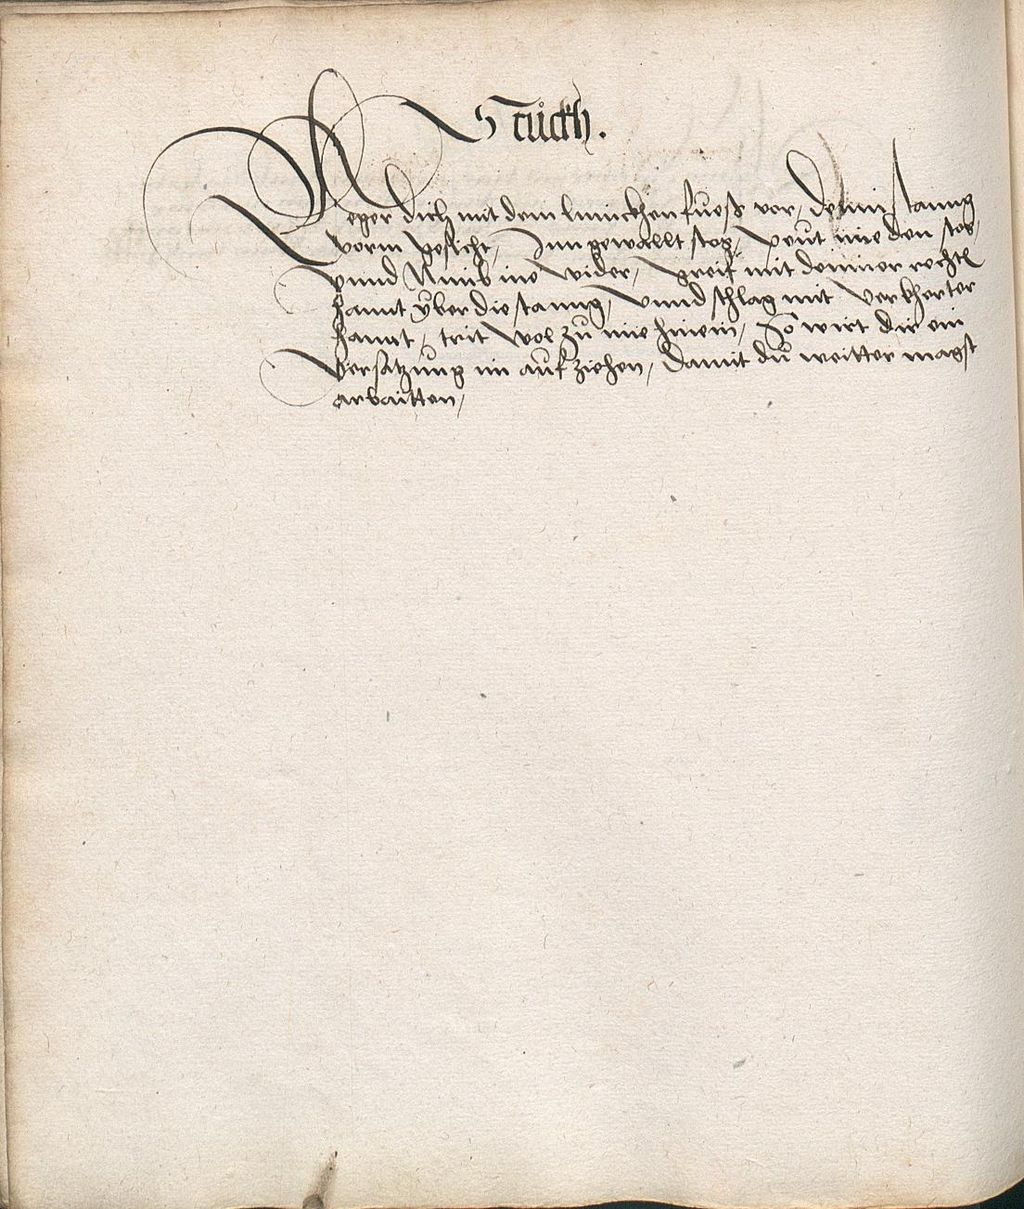 Stuckh.
Leger dich mit dem linnckhen fueß vor, dein stanng
vorm gesicht, Inn gewallt stos, peut nie den stos,
vnnd Nimb ine wider, greif mit deiner recht
hannt vber die stanng, vnnd schlag mit verkherter
hannt, trit wol zu ime hinein, So wirt dir ein
versatzung im aufziehen, damit du weitter magst
arbaitten,